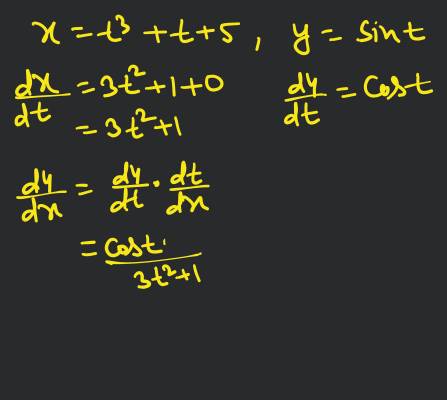 x = t³ + t + 5, y = sint
dx/dt = 3t² + 1 + 0 dy/dt = Cost
= 3t² + 1
dy/dx = dy/dt · dt/dx
= Cost/3t²+1